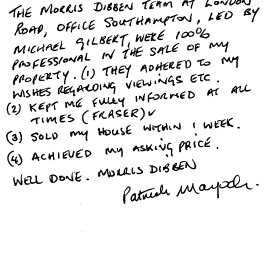 THE MORRIS DIBBEN TEAM AT LONDON
ROAD, OFFICE SOUTHAMPTON, LED BY
MICHAEL GILBERT, WERE 100%
PROFESSIONAL IN THE SALE OF MY
PROPERTY. (1) THEY ADHERED TO MY
WISHES REGARDING VIEWINGS ETC.
(2) KEPT ME FULLY INFORMED AT ALL
TIMES (FRASER)✓
(3) SOLD MY HOUSE WITHIN 1 WEEK.
(4) ACHIEVED MY ASKING PRICE.
WELL DONE. MORRIS DIBBEN
Patrick